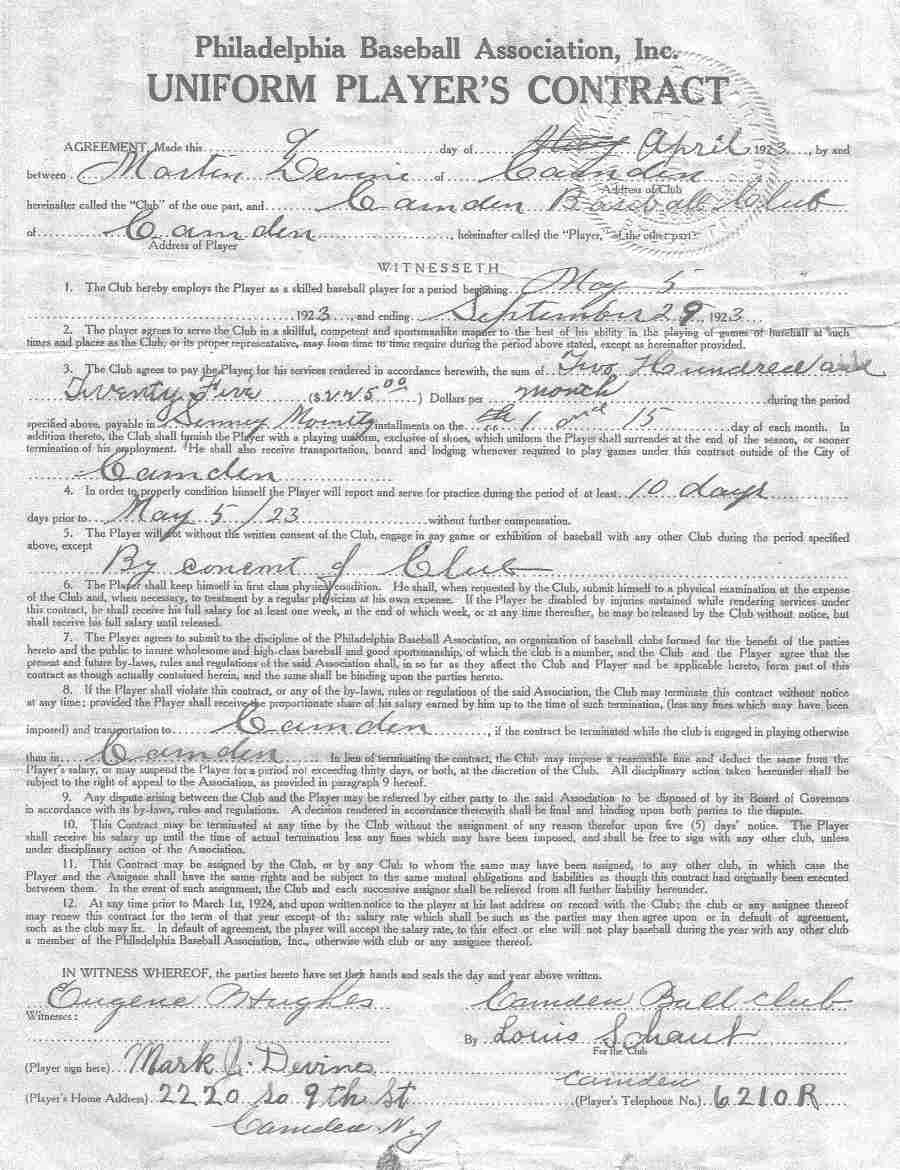 Philadelphia Baseball Association, Inc.
UNIFORM PLAYER'S CONTRACT
AGREEMENT, Made this 7 day of May April 1923, by and
between Martin Devine of Camden
Address of Club
hereinafter called the "Club" of the one part, and Camden Baseball Club
of Camden, hereinafter called the "Player," of the other part:
Address of Player
WITNESSETH
1. The Club hereby employs the Player as a skilled baseball player for a period beginning May 5
1923, and ending September 29 1923
2. The player agrees to serve the Club in a skillful, competent and sportsmanlike manner to the best of his ability in the playing of games of baseball at such
times and places as the Club, or its proper representative, may from time to time require during the period above stated, except as hereinafter provided.
3. The Club agrees to pay the Player for his services rendered in accordance herewith, the sum of Two Hundred and
Twenty Five ($225 00) Dollars per month during the period
specified above, payable in installments on the 1 and 15 day of each month. In
addition thereto, the Club shall furnish the Player with a playing uniform, exclusive of shoes, which uniform the Player shall surrender at the end of the season, or sooner
termination of his employment. He shall also receive transportation, board and lodging whenever required to play games under this contract outside of the City of
Camden
4. In order to properly condition himself the Player will report and serve for practice during the period of at least 10 days
days prior to May 5/23 without further compensation.
5. The Player will not without the written consent of the Club, engage in any game or exhibition of baseball with any other Club during the period specified
above, except
By concent of Club
6. The Player shall keep himself in first class physical condition. He shall, when requested by the Club, submit himself to a physical examination at the expense
of the Club and, when necessary, to treatment by a regular physician at his own expense. If the Player be disabled by injuries sustained while rendering services under
this contract, he shall receive his full salary for at least one week, at the end of which week, or at any time thereafter, he may be released by the Club without notice, but
shall receive his full salary until released.
7. The Player agrees to submit to the discipline of the Philadelphia Baseball Association, an organization of baseball clubs formed for the benefit of the parties
hereto and the public to insure wholesome and high-class baseball and good sportsmanship, of which the club is a member, and the Club and the Player agree that the
present and future by-laws, rules and regulations of the said Association shall, in so far as they affect the Club and Player and be applicable hereto, form part of this
contract as though actually contained herein, and the same shall be binding upon the parties hereto.
8. If the Player shall violate this contract, or any of the by-laws, rules or regulations of the said Association, the Club may terminate this contract without notice
at any time; provided the Player shall receive the proportionate share of his salary earned by him up to the time of such termination, (less any fines which may have been
imposed) and transportation to Camden, if the contract be terminated while the club is engaged in playing otherwise
than in Camden. In lieu of terminating the contract, the Club may impose a reasonable fine and deduct the same from the
Player's salary, or may suspend the Player for a period not exceeding thirty days, or both, at the discretion of the Club. All disciplinary action taken hereunder shall be
subject to the right of appeal to the Association, as provided in paragraph 9 hereof.
9. Any dispute arising between the Club and the Player may be referred by either party to the said Association to be disposed of by its Board of Governors
in accordance with its by-laws, rules and regulations. A decision rendered in accordance therewith shall be final and binding upon both parties to the dispute.
10. This Contract may be terminated at any time by the Club without the assignment of any reason therefor upon five (5) days' notice. The Player
shall receive his salary up until the time of actual termination less any fines which may have been imposed, and shall be free to sign with any other club, unless
under disciplinary action of the Association.
11. This Contract may be assigned by the Club, or by any Club to whom the same may have been assigned, to any other club, in which case the
Player and the Assignee shall have the same rights and be subject to the same mutual obligations and liabilities as though this contract had originally been executed
between them. In the event of such assignment, the Club and each successive assignor shall be relieved from all further liability hereunder.
12. At any time prior to March 1st, 1924, and upon written notice to the player at his last address on record with the Club; the club or any assignee thereof
may renew this contract for the term of that year except of the salary rate which shall be such as the parties may then agree upon or in default of agreement,
such as the club may fix. In default of agreement, the player will accept the salary rate, to this effect or else will not play baseball during the year with any other club
a member of the Philadelphia Baseball Association, Inc., otherwise with club or any assignee thereof.
IN WITNESS WHEREOF, the parties hereto have set their hands and seals the day and year above written.
Eugene Hughes Camden Ball Club
Witnesses:
By Louis Schaut
For the Club
(Player sign here) Mark J. Devine
Camden
(Player's Home Address) 2220 So 9th St (Player's Telephone No.) 6210R
Camden N.J